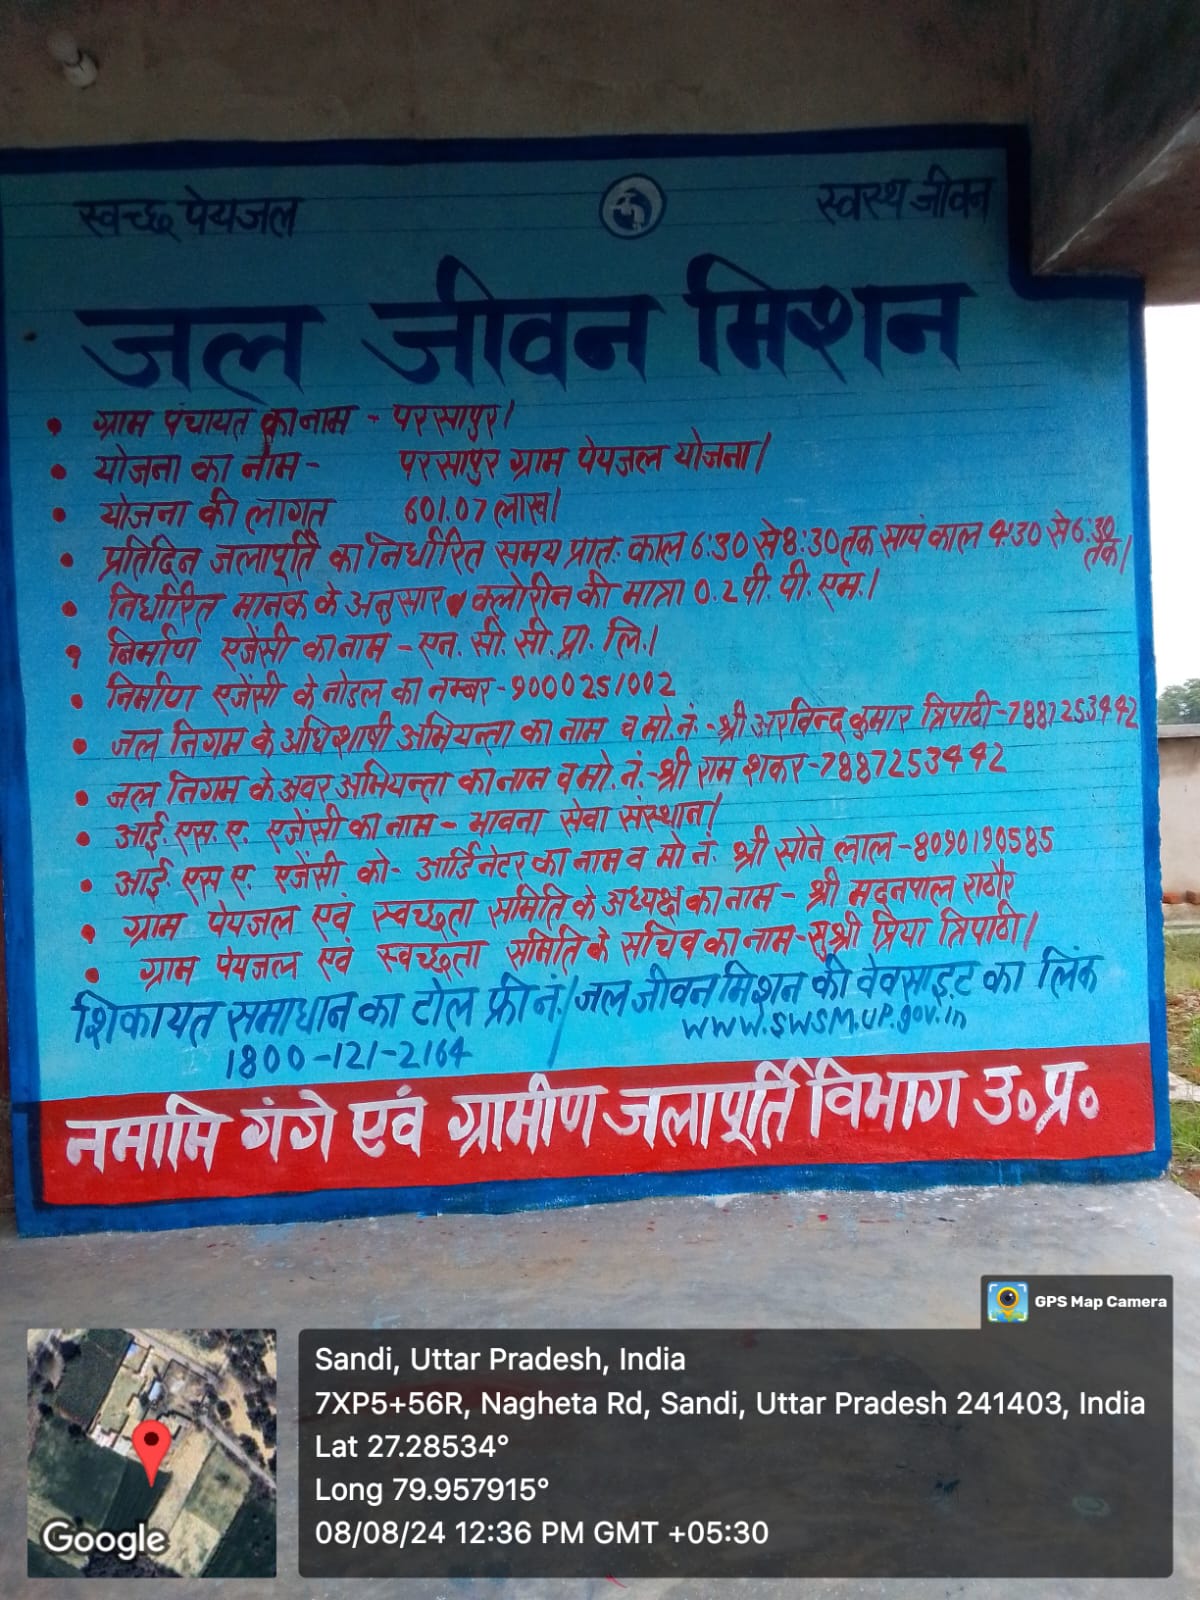 स्वच्छ पेयजल
स्वस्थ जीवन
जल जीवन मिशन
• ग्राम पंचायत का नाम - परसापुर।
• योजना का नाम - परसापुर ग्राम पेयजल योजना।
• योजना की लागत 601.07 लाख।
• प्रतिदिन जलापूर्ति का निर्धारित समय प्रातः काल 6:30 से 8:30 तक सायं काल 4:30 से 6:30 तक।
• निर्धारित मानक के अनुसार क्लोरीन की मात्रा 0.2 पी. पी. एम.।
• निर्माण एजेंसी का नाम - एन. सी. सी. प्रा. लि.।
• निर्माण एजेंसी के नोडल का नम्बर - 9000251002
• जल निगम के अधिशाषी अभियन्ता का नाम व मो. नं. - श्री अरविन्द कुमार त्रिपाठी - 7887253442
• जल निगम के अवर अभियन्ता का नाम व मो. नं. - श्री राम शंकर - 7887253442
• आई. एस. ए. एजेंसी का नाम - भावना सेवा संस्थान।
• आई. एस. ए. एजेंसी को- आर्डिनेटर का नाम व मो नं. श्री सोने लाल - 8090190585
• ग्राम पेयजल एवं स्वच्छता समिति के अध्यक्ष का नाम - श्री मदनपाल राठौर
• ग्राम पेयजल एवं स्वच्छता समिति के सचिव का नाम - सुश्री प्रिया त्रिपाठी।
शिकायत समाधान का टोल फ्री नं. / जल जीवन मिशन की वेवसाइट का लिंक
1800-121-2164
www.swsm.up.gov.in
नमामि गंगे एवं ग्रामीण जलापूर्ति विभाग उ॰ प्र॰
GPS Map Camera
Sandi, Uttar Pradesh, India
7XP5+56R, Nagheta Rd, Sandi, Uttar Pradesh 241403, India
Lat 27.28534°
Long 79.957915°
08/08/24 12:36 PM GMT +05:30
Google